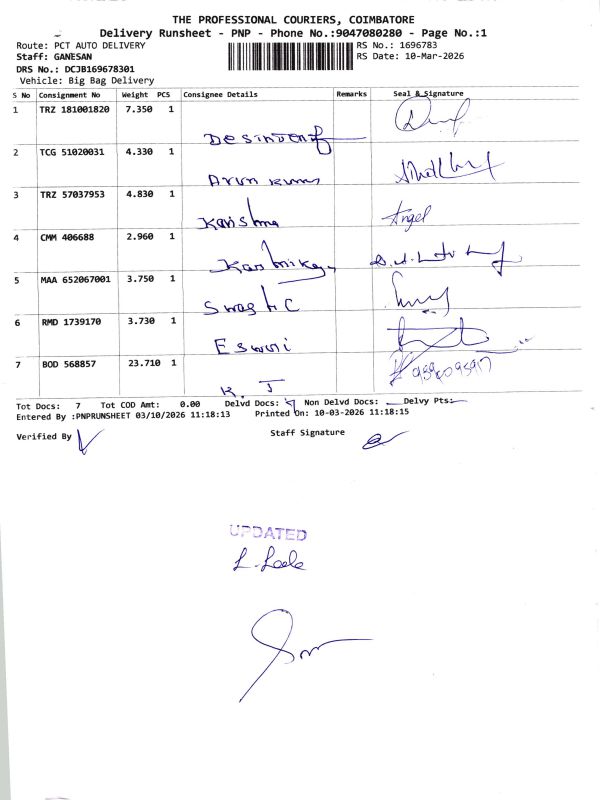 THE PROFESSIONAL COURIERS, COIMBATORE
Delivery Runsheet - PNP - Phone No.:9047080280 - Page No.:1
Route: PCT AUTO DELIVERY RS No.: 1696783
Staff: GANESAN RS Date: 10-Mar-2026
DRS No.: DCJB169678301
Vehicle: Big Bag Delivery
S No Consignment No Weight PCS Consignee Details Remarks Seal & Signature
1 TRZ 181001820 7.350 1
2 TCG 51020031 4.330 1
Arun Kumar
3 TRZ 57037953 4.830 1
Karishma Angel
4 CMM 406688 2.960 1
Karthikey
5 MAA 652067001 3.750 1
Swastic
6 RMD 1739170 3.730 1
Eswari
7 BOD 568857 23.710 1
K. J
Tot Docs: 7 Tot COD Amt: 0.00 Delvd Docs: 7 Non Delvd Docs: Delvy Pts:
Entered By :PNPRUNSHEET 03/10/2026 11:18:13 Printed On: 10-03-2026 11:18:15
Verified By Staff Signature
UPDATED